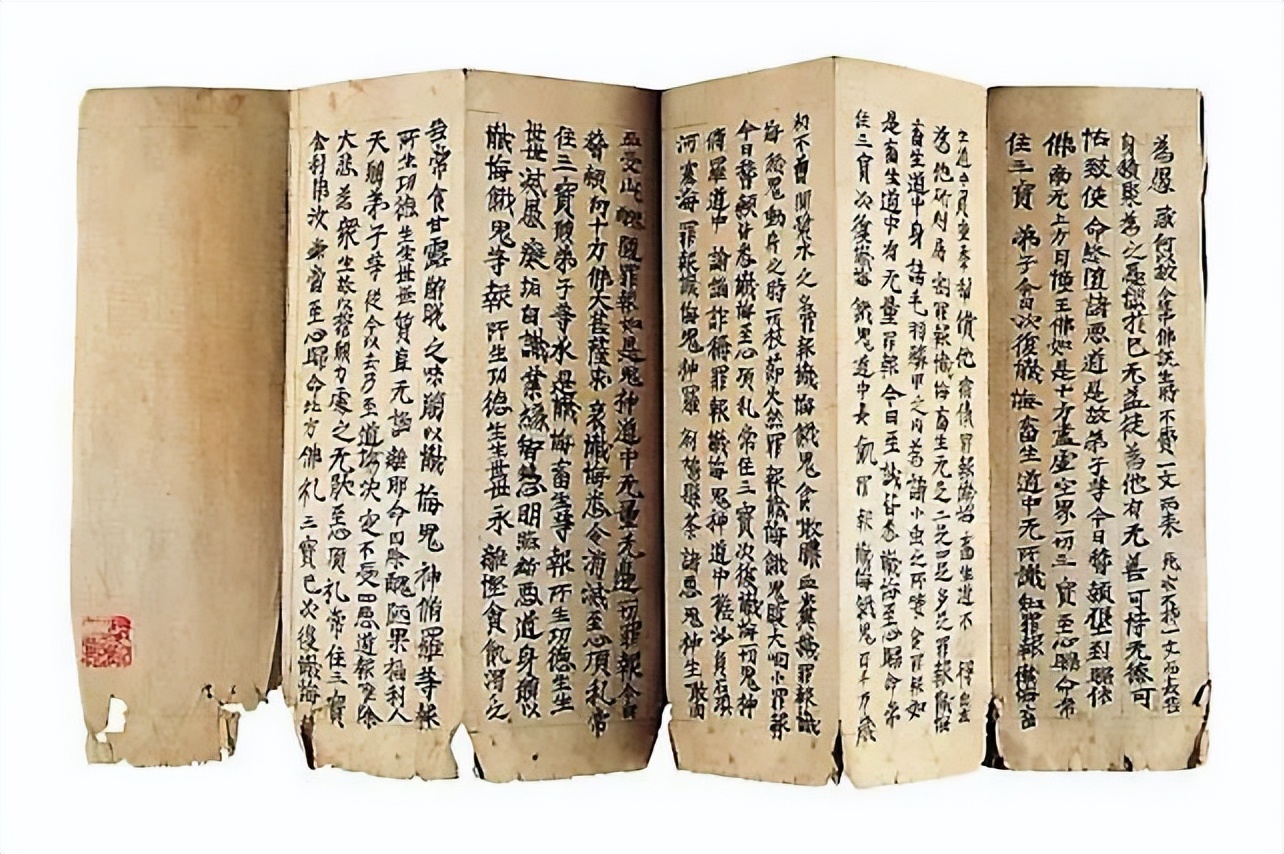 為愚 惑何以故 佛説生時不賫一文而来 死亦不持一文而去苦
身積聚為之憂惱於己无益徒為他有无善可恃无德可
怙致使命終墮諸惡道是故弟子等今日稽顙墾到歸依
佛南无上方日 王佛如是十方盡虛空界一切三寶至心歸命常
住三寶 弟子 次復懺悔畜生道中无所識知罪報懺悔畜
生道中負重牽犁償他宿債罪報懺悔畜生道中不 得自在
為他斫刺屠割罪報懺悔畜生无足二足四足多足罪報懺悔
畜生道中身諸毛羽鱗甲之内為諸小虫之所唼食罪報如
是畜生道中有无量罪報今日至誠皆悉懺悔至心歸命常
住三寶次復懺悔餓鬼道中長飢罪報懺悔餓鬼百千万歲
初不曾聞漿水之名罪報懺悔餓鬼食噉膿血糞穢罪報懺
悔餓鬼動身之時一切枝節火然罪報懺悔餓鬼腹大咽小罪報
今日稽顙皆悉懺悔至心頂礼常住三寶次復懺悔一切鬼神
脩羅道中諂誑詐稱罪報懺悔鬼神道中擔沙負石填
河塞海罪報懺悔鬼神羅刹鳩槃荼諸惡鬼神生噉血肉
受此醜陋罪報如是鬼神道中无量无邊一切罪報今日
稽顙向十方佛大菩薩求哀懺悔悉令消滅至心頂礼常
住三寶願弟子等承是懺悔畜生等報所生功德生生
世世滅愚癡垢自識業緣智慧明照斷惡道身願以
懺悔餓鬼等報所生功德生生世世永離慳貪飢渴之
苦常食甘露解脱之味願以懺悔鬼神脩羅等報
所生功德生生世世質直无諂離邪命因除醜陋果福利人
天願弟子等從今以去乃至道場決定不受四惡道報唯除
大悲為衆生故以誓願力處之无猒至心頂礼常住三寶
舍利弗汝 當至心歸命北方佛礼三寶已次復懺悔